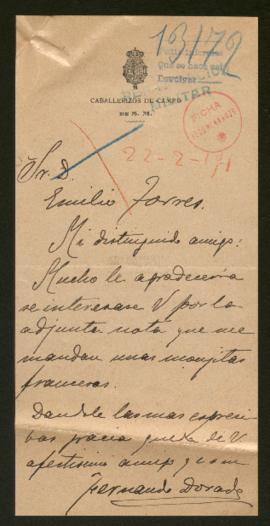 13172
Pedir informes
Que se hace así
Devolver
MILITAR
CABALLERIZO DE CAMPO
DE S. M.
FICHA
22-2-191
Sr. D.
Emilio Torres.
Mi distinguido amigo:
Mucho le agradecería
se interesase V por la
adjunta nota que me
mandan unas monjitas
francesas.
Dandole las mas expresi-
bas gracias queda de V
afectisimo amigo q s m
Fernando Dorado